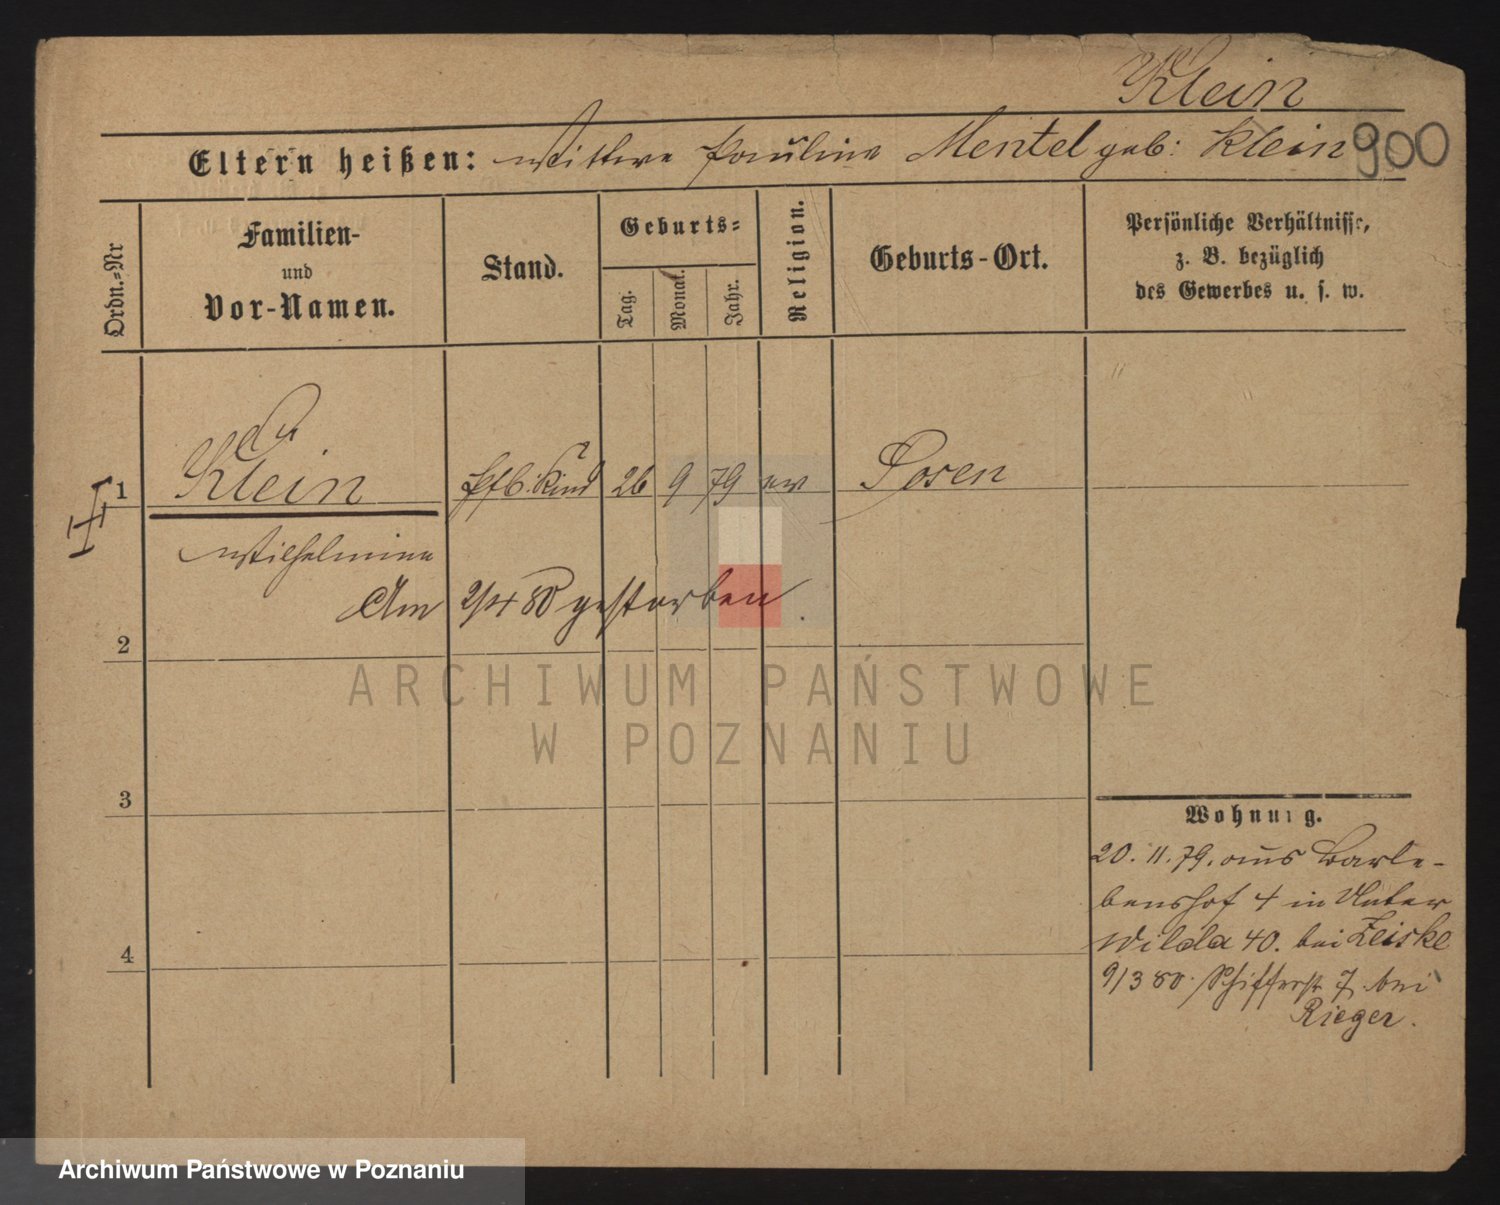 Klein
Eltern heißen: Wittwe Pauline Mentel geb: Klein 900
Ordn.=Nr
Familien-
und
Vor-Namen.
Stand.
Geburts=
Tag.
Monat.
Jahr.
Religion.
Geburts-Ort.
Persönliche Verhältnisse,
z. B. bezüglich
des Gewerbes u. s. w.
1 Klein Kind 26 9 79 ev Posen
Wilhelmine
Am 2/4 80 gestorben
2
3
4
Wohnung.
20. 11. 79. aus Barle-
benshof 4 in Unter
Wilda 40. bei Zeiske
9/3 80. Schifferstr 7 bei
Rieger.
ARCHIWUM PAŃSTWOWE
W POZNANIU
Archiwum Państwowe w Poznaniu